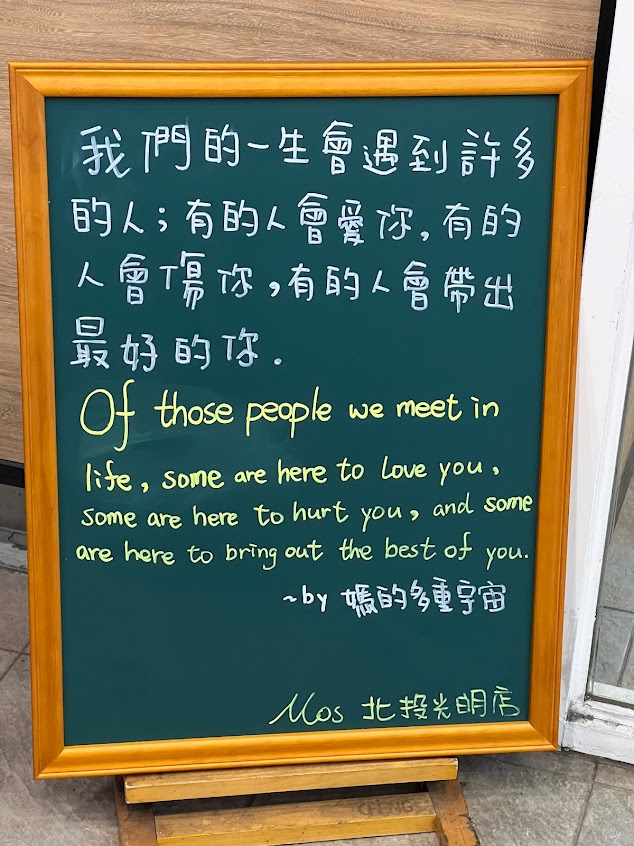 我們的一生會遇到許多
的人；有的人會愛你，有的
人會傷你，有的人會帶出
最好的你．
Of those people we meet in
life, some are here to love you,
some are here to hurt you, and some
are here to bring out the best of you.
~by 媽的多重宇宙
Mos 北投光明店